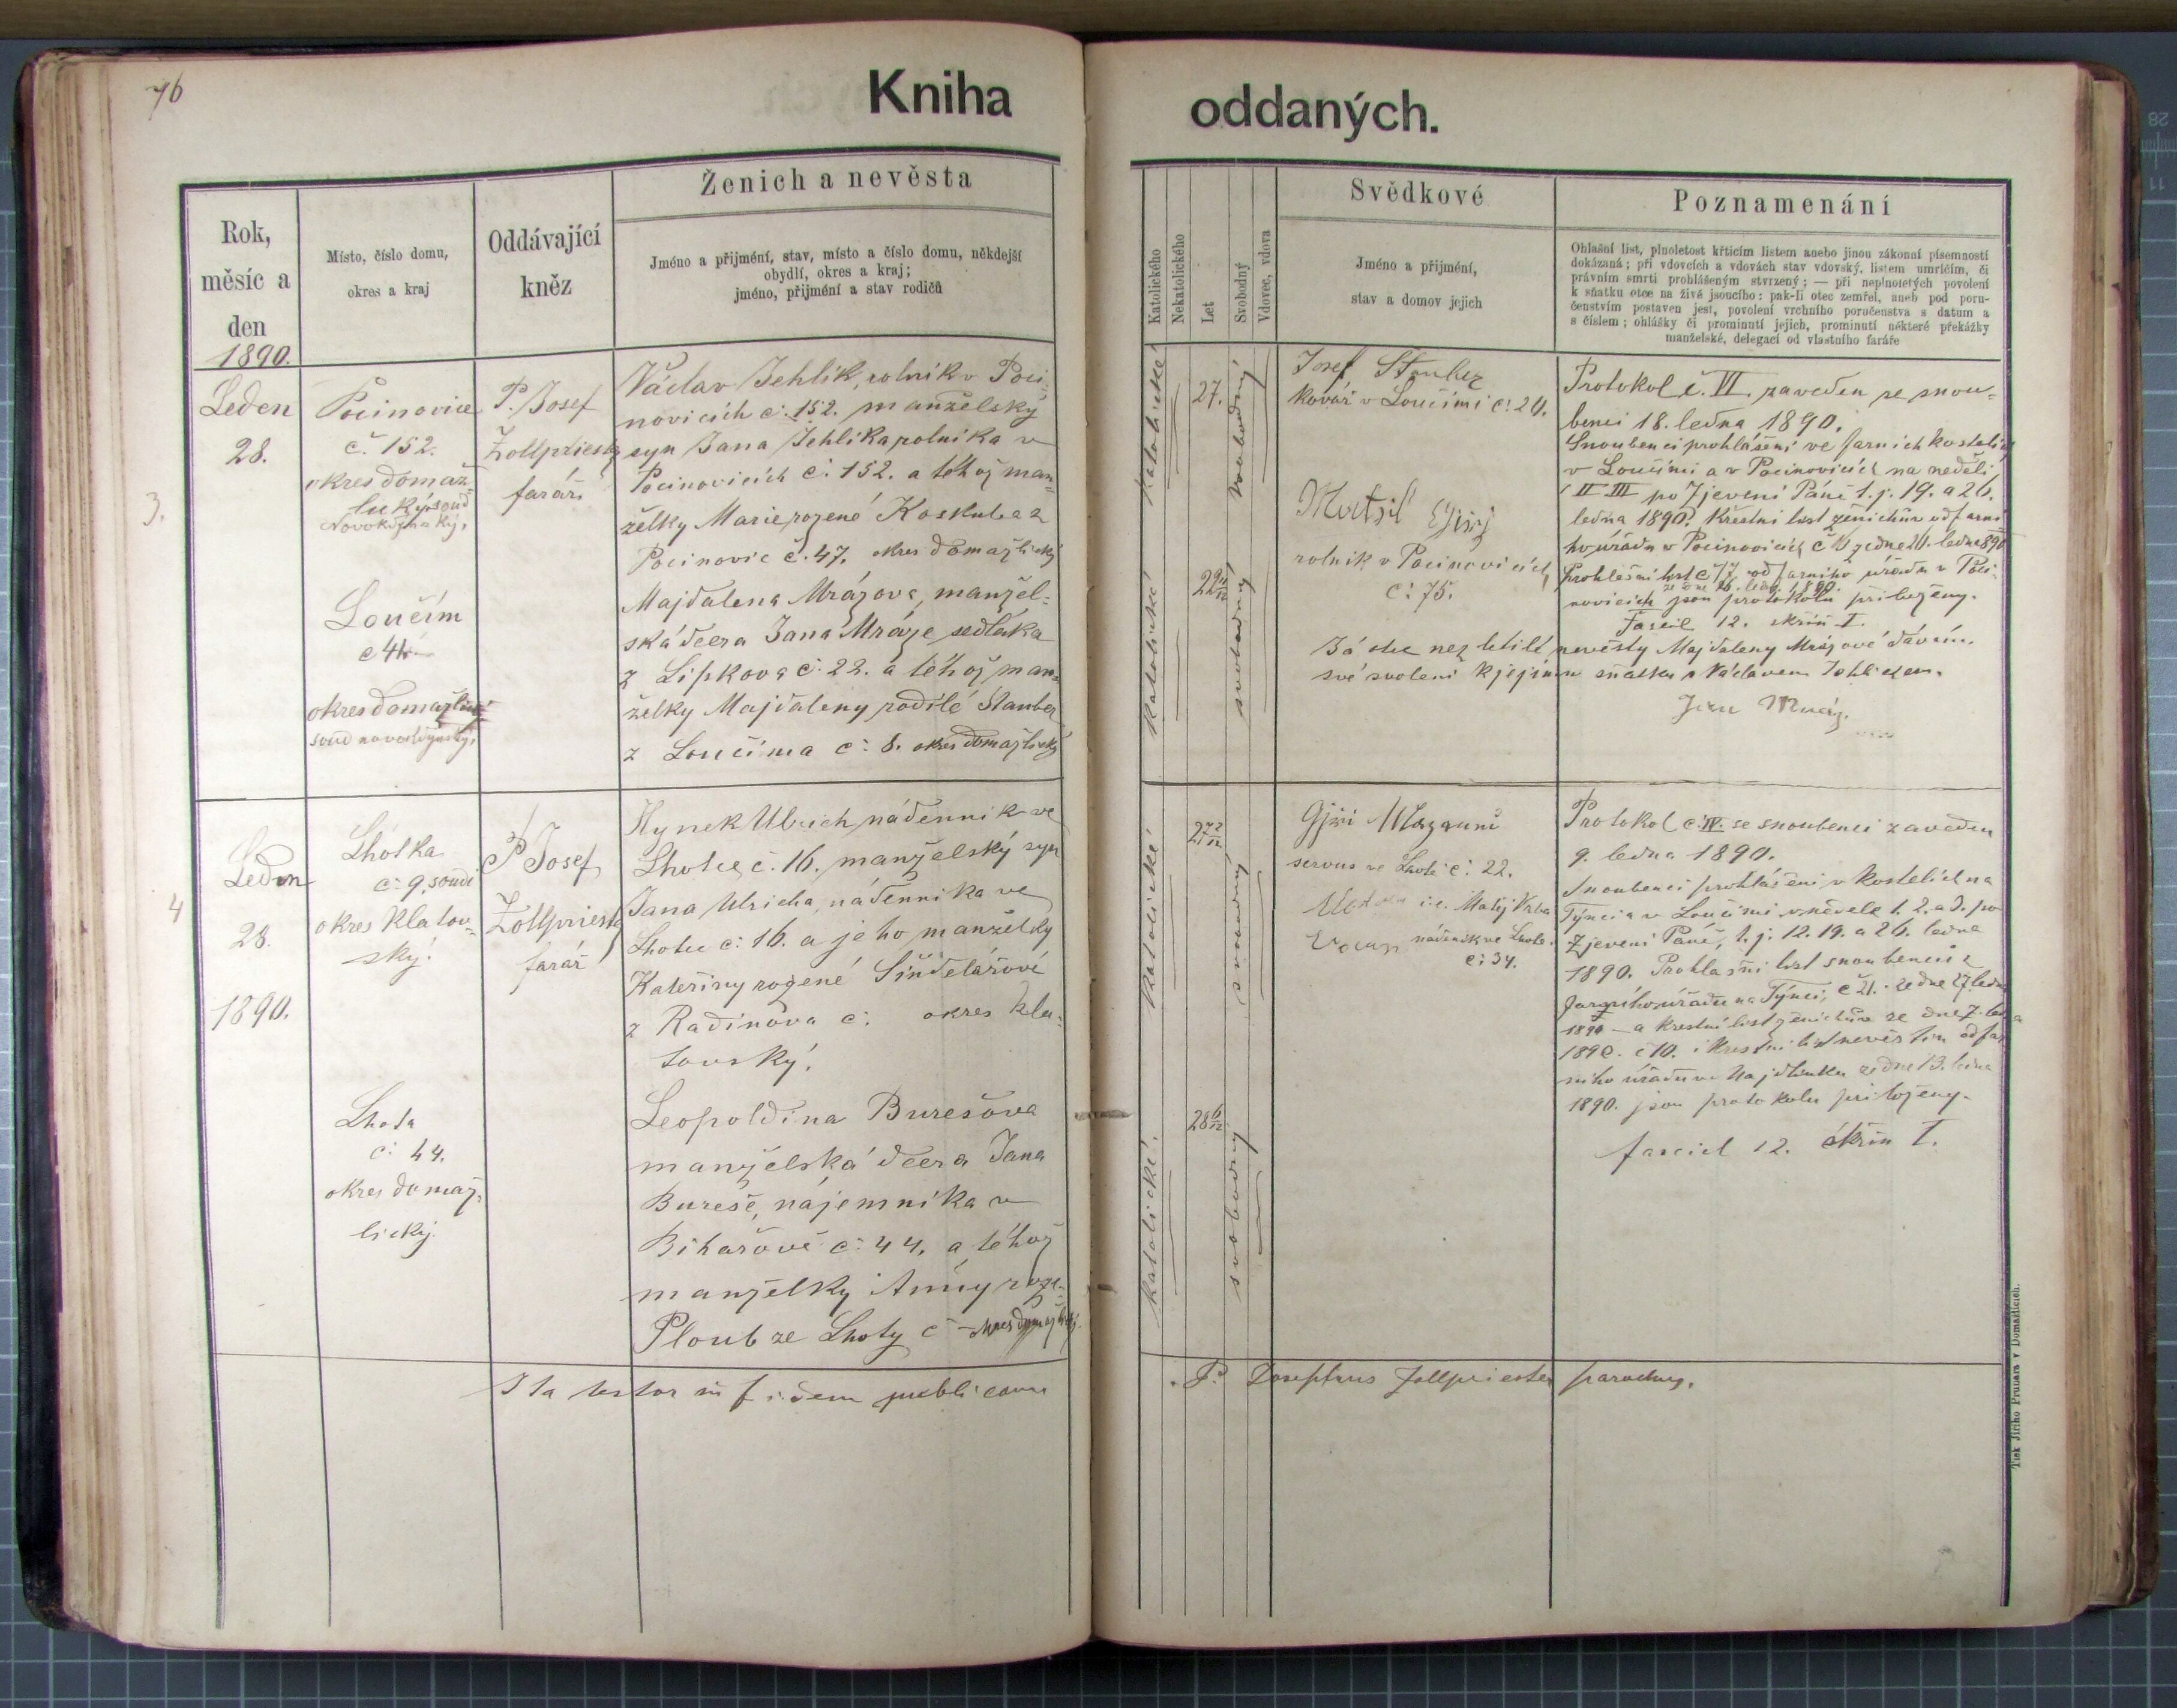 76
Kniha
oddaných.
Rok,
měsíc a
den
1890.
Místo, číslo domu,
okres a kraj
Oddávající
kněz
Ženich a nevěsta
Jméno a přijmění, stav, místo a číslo domu, někdejší
obydlí, okres a kraj;
jméno, přijmění a stav rodičů
Katolického
Nekatolického
Let
Svobodný
Vdovec, vdova
Svědkové
Jméno a přijmění,
stav a domov jejich
Poznamenání
Ohlašní list, plnoletost křticím listem anebo jinou zákonní písemností
dokázaná; při vdovcích a vdovách stav vdovský, listem umrlčím, či
právním smrti prohlášeným stvrzený; — při neplnoletých povolení
k sňatku otce na živě jsoucího: pak-li otec zemřel, aneb pod poru-
čenstvím postaven jest, povolení vrchního poručenstva s datum a
s číslem; ohlášky či prominutí jejich, prominutí některé překážky
manželské, delegací od vlastního faráře
3.
Leden
28.
Pocinovice
č. 152.
okres domaž-
lický, soud
Novokdyňský.
Loučím
č 4
okres domažlický
soud novokdyňský,
P. Josef
Zollpriester
farář.
Václav Jehlík, rolník v Poci-
novicích č. 152. manželský
syn Jana Jehlíka rolníka v
Pocinovicích č. 152. a téhož man-
želky Marie rozené Koskuba z
Pocinovic č. 47. okres domažlický
Majdalena Mrázova, manžel-
ská dcera Jana Mráze sedláka
z Lipkova č. 22. a téhož man-
želky Majdaleny rodilé Stauber
z Loučíma č. 8. okres domažlický
katolické
27.
svobodný
katolické
22
svobodný
Josef Stauber
kovář v Loučimi č. 20.
Matsil Gjiřj
rolník v Pocinovicích
č. 75.
Protokol č. VI. zaveden se snou-
benci 18. ledna 1890.
Snoubenci prohlášeni ve farních kostelích
v Loučimi a v Pocinovicích na neděli
II III po Zjevení Páně t. j. 19. a 26.
ledna 1890. Křestní list ženichův od farní-
ho úřadu v Pocinovicích č ze dne 20. ledna 890
Prohlašní list č 7 od farního úřadu v Poci-
ze dne 26. led. 1890.
novicích jsou protokolu přiloženy.
Fascil 12. skříň I.
Já otec nezletilé nevěsty Majdaleny Mrázové dávám
své svolení k jejímu sňatku s Václavem Jehlíkem.
Jan Mráz.
4
Leden
28.
1890.
Lhotka
č. 9. soudi
okres klatov-
ský.
Lhota
č. 44.
okres domaž-
lický.
P. Josef
Zollpriester
farář
Hynek Ulrich nádenník ve
Lhotce č. 16. manželský syn
Jana Ulricha, nádenníka ve
Lhotce č. 16. a jeho manželky
Kateřiny rozené Šindelářové
z Radinova č. okres kla-
tovský.
Leopoldina Burešova
manželská dcera Jana
Bureše, nájemníka v
Bihařově č. 44. a téhož
manželky Anny roze-
Ploub ze Lhoty č — okres domažlický.
katolické
27
svobodný
katolické.
28 6/12
svobodný
Gjiři Mazanni
servus ve Lhotě č. 22.
i.e. Matěj Vrba
nádenník ve Lhotě.
č. 34.
Protokol č. IV. se snoubenci zaveden
9. ledna 1890.
Snoubenci prohlášeni v kostelích na
Týnci a v Loučimi v neděle 1. 2. a 3. po
Zjevení Páně, t. j. 12. 19. a 26. ledna
1890. Prohlašní list snoubenců z
farního úřadu na Týnci, č 21. ze dne 27 ledna
1890 — a křestní list ženichův ze dne 7. ledna
1890. č 10. i křestní list nevěstin od far-
ního úřadu ze dne 13. ledna
1890. jsou protokolu přiloženy.
fascicl 12. skříň I.
Ita testor in fidem publicam
P. Josephus Zollpriester parochus.
Tisk Jiřího Prunara v Domažlicích.